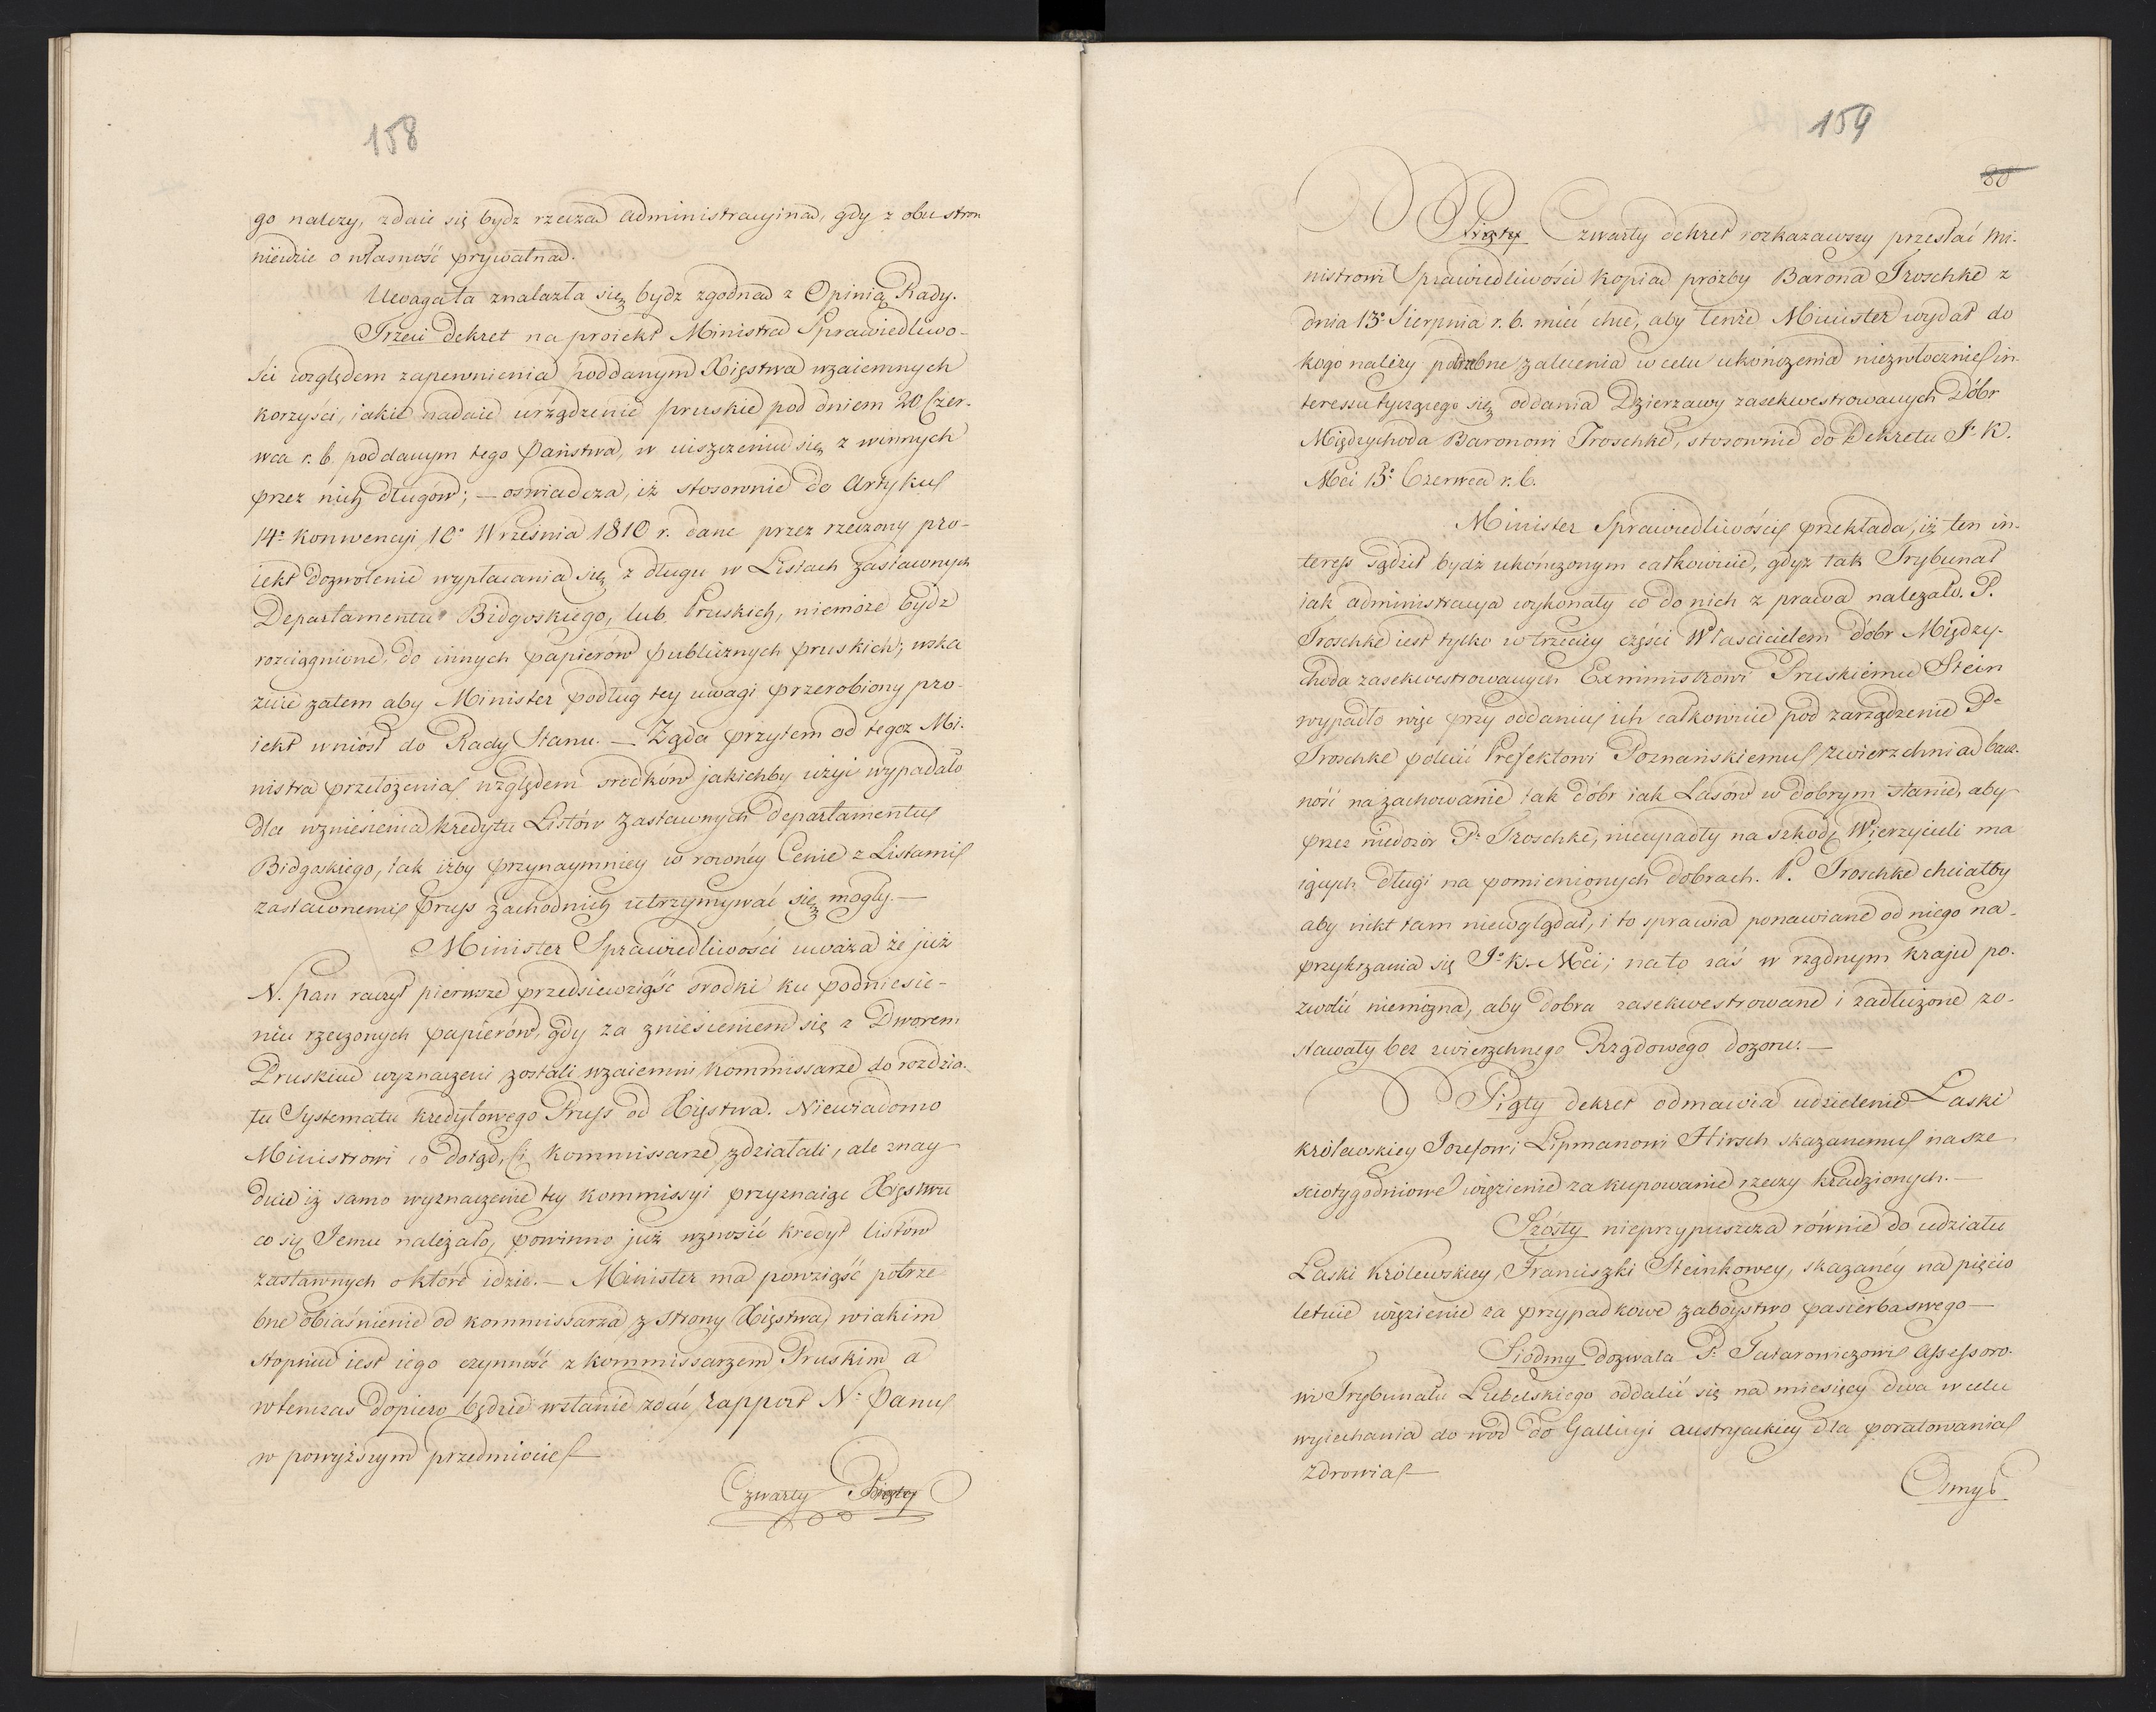 158
go nalezy, zdaie się bydz rzeczą administracyiną, gdy z obu stron
nieidzie o własność prywatną.
Uwaga ta znalazła się bydz zgodną z Opinią Rady.
Trzeci dekret na proiekt Ministra Sprawiedliwo-
ści względem zapewnienia poddanym Xięstwa wzaiemnych
korzyści, iakie nadaie urządzenie pruskie pod dniem 20 Czer-
wca r. b. poddanym tego Państwa, w uiszczeniu się z winnych
przez nich długów; — oswiadcza, iż stosownie do Artykuł
14º konwencyi 10º Września 1810 r. dane przez rzeczony pro-
iekt dozwolenie wypłacania się z długu w Listach zastawnych
Departamentu Bidgoskiego, lub Pruskich, niemoże bydz
rozciągnione, do innych papierów publicznych pruskich; wska
zuie zatem aby Minister podług tey uwagi przerobiony pro-
iekt wniósł do Rady Stanu. — Żąda przytem od tegoz Mi-
nistra przełożenia względem srodków jakichby użyć wypadało
dla wzniesienia kredytu Listów zastawnych Departamentu
Bidgoskiego, tak iżby przynaymniey w równéy Cenie z Listami
zastawnemi Pruss zachodnich utrzymywać się mogły. —
Minister Sprawiedliwości uważa że już
N. Pan raczył pierwsze przedsięwziąść srodki ku podniesie-
niu rzeczonych papierów, gdy za zniesieniem się z Dworem
Pruskim wyznaczeni zostali wzaiemni kommissarze do rozdzia-
łu Systematu kredytowego Pruss od Xięstwa. Niewiadomo
Ministrowi co dotąd, Ci kommissarze zdziałali, ale znay
duie iż samo wyznaczenie tey kommissyi przyznaiąc Xięstwu
co się Jemu należało, powinno już wznosić kredyt listów
zastawnych o które idzie. — Minister ma powziąść potrze
bne obiaśnienie od kommissarza z strony Xięstwa, w iakim
stopniu iest iego czynność z kommissarzem Pruskim a
wtenczas dopiero będzie wstanie zdać rapport N. Panu
w powyższym przedmiocie —
Czwarty Piąty
159
80
Piąty Czwarty dekret rozkazawszy przesłać Mi-
nistrowi Sprawiedliwości kopią prozby Barona Troschke z
dnia 13º Sierpnia r. b. mieć chce, aby tenże Minister wydał do
kogo należy potrzebne zalecenia w celu ukończenia niezwłocznie in-
teressu tyczącego się oddania Dzierzawy zasekwestrowanych Dóbr
Międzychoda Baronowi Troschke, stosownie do Dekretu J. K.
Mci 13º Czerwca r. b.
Minister Sprawiedliwości przekłada, iż ten in-
teress sądził bydź ukończonym całkowicie, gdyż tak Trybunał
iak administracya wykonały co do nich z prawa nalezało. P.
Troschke iest tylko w trzeciey części Właścicielem dóbr Między-
choda zasekwestrowanych Exministrowi Pruskiemu Stein
wypadło więc przy oddaniu ich całkowicie pod zarządzenie Pº
Troschke polecić Prefektowi Poznańskiemu zwierzchnią bacz-
ność na zachowanie tak dóbr iak Lasów w dobrym stanie, aby
przez niedozór Pº Troschke, nieupadły na szkodę Wierzycieli ma
iących długi na pomienionych dobrach. P. Troschke chciałby
aby nikt tam niewglądał, i to sprawia ponawiane od niego na-
przykrzania się Jº K. Mci; na to zaś w rządnym kraju po-
zwolić niemożna, aby dobra zasekwestrowane i zadłużone zo-
stawały bez zwierzchnego Rządowego dozoru. —
Piąty dekret odmawia udzielenie Łaski
królewskiey Jozefowi Lipmanowi Hirsch skazanemu na sze
ściotygodniowe więzienie za kupowanie rzeczy kradzionych. —
Szósty nieprzypuszcza równie do udziału
Łaski Królewskiey, Franciszki Steinkowey, skazanéy na pięcio
letnie więzienie za przypadkowe zabóystwo pasierba swego —
Siódmy dozwala P. Tatarowiczowi Assessoro-
wi Trybunału Lubelskiego oddalić się na miesięcy dwa w celu
wyiechania do wód do Gallicyi austryackiey dla poratowania
zdrowia —
Osmy